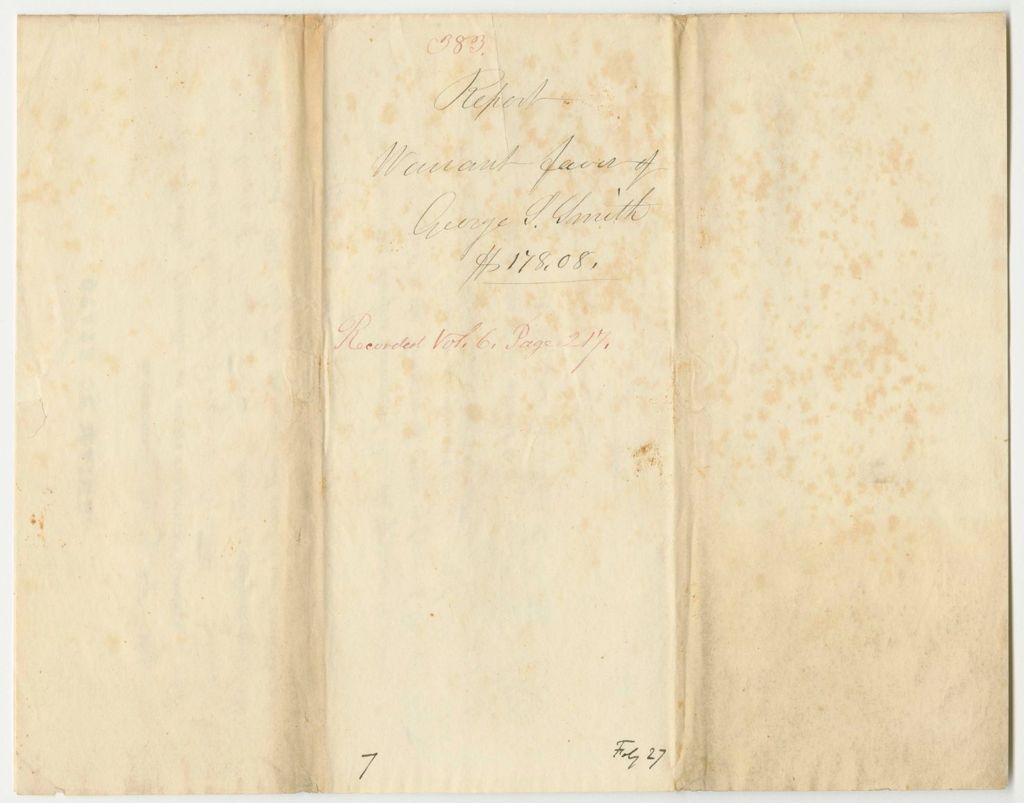 383.
Report
Warrant favor of
George S. Smith
$178.08.
Recorded Vol. 6. Page 217.
7
27